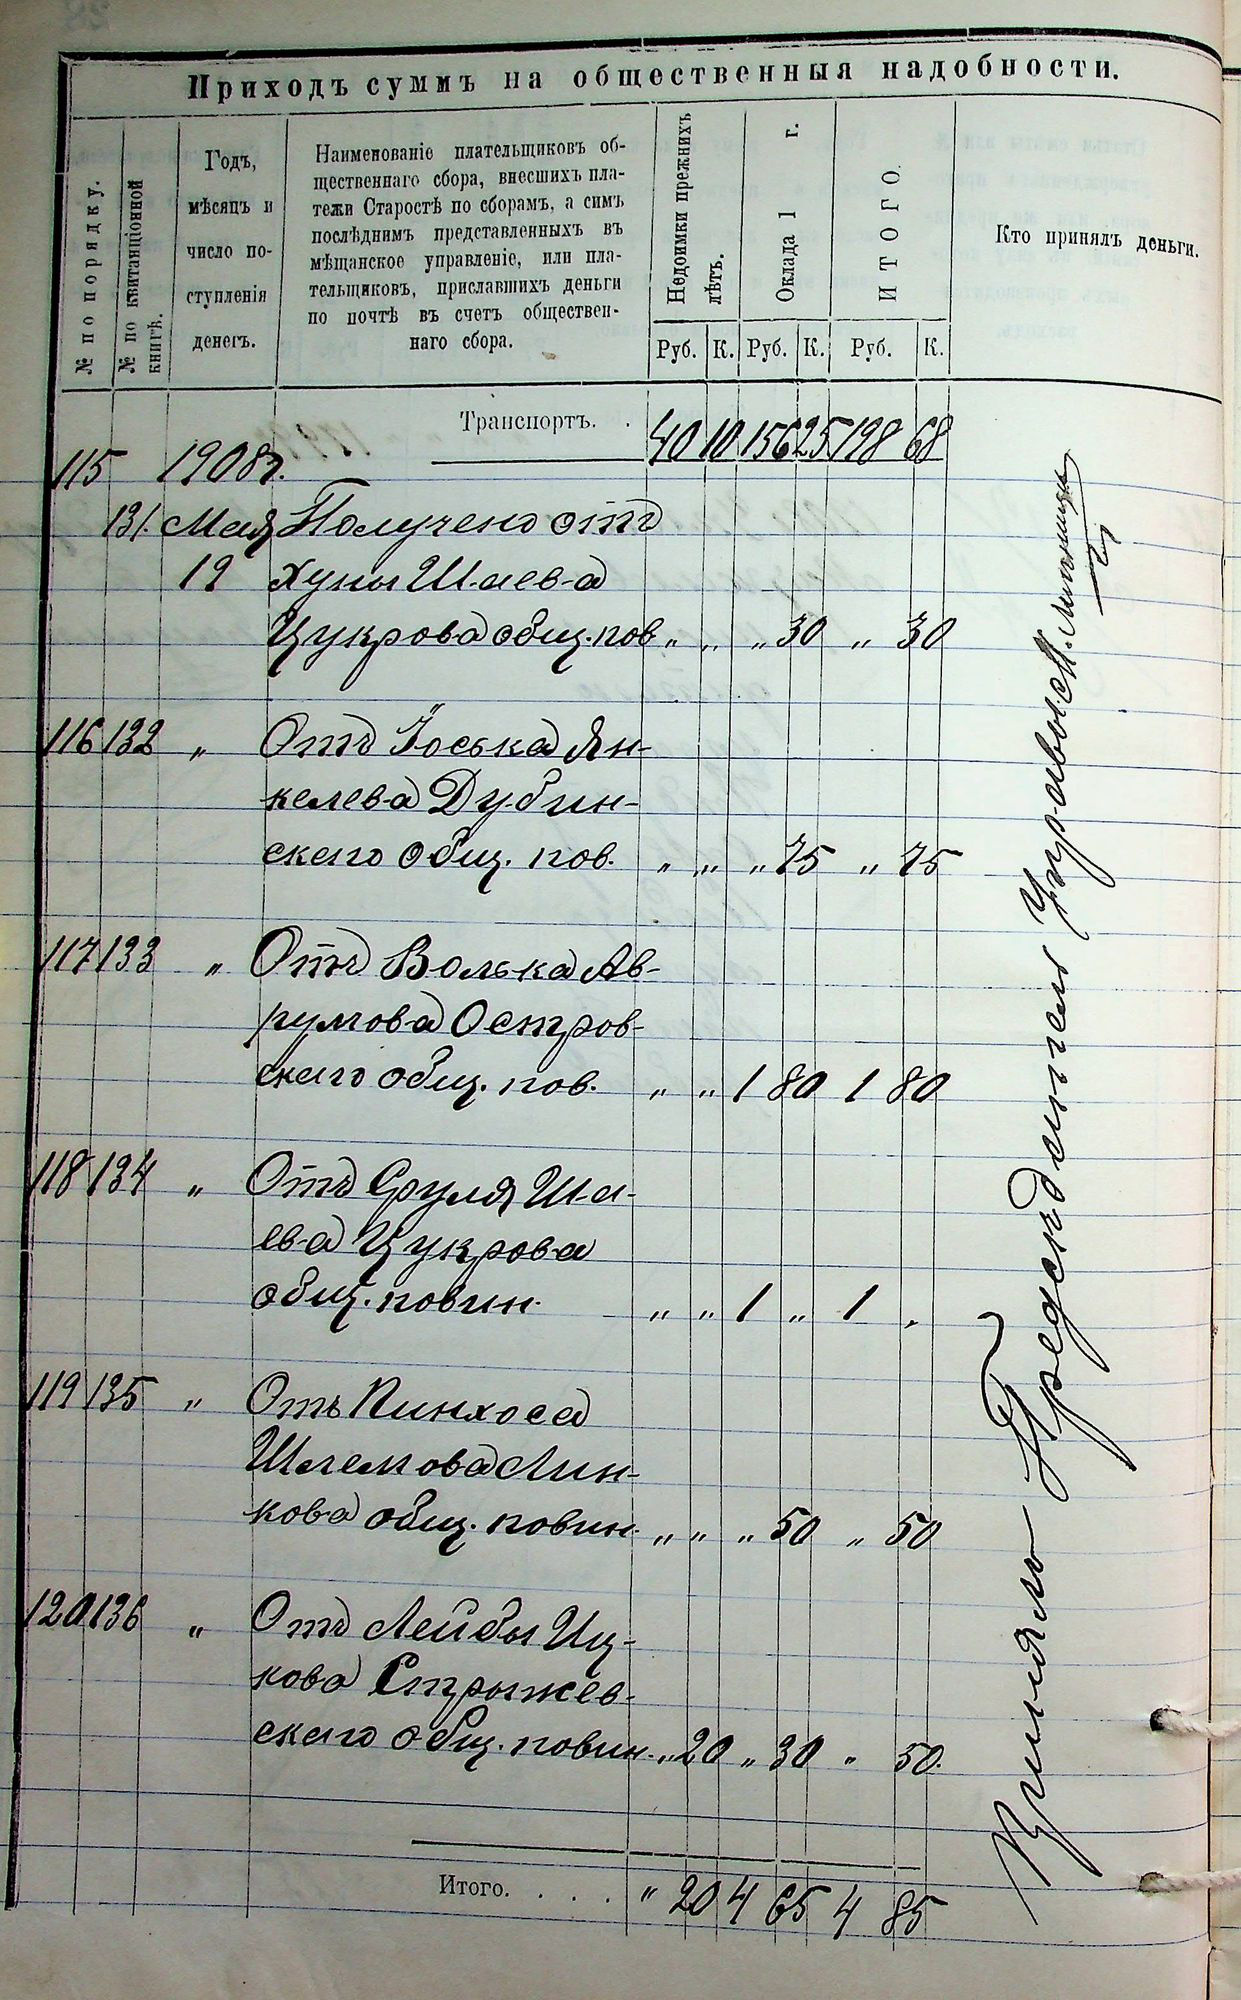 Приходъ суммъ на общественныя надобности.
№ по порядку.
№ по квитанціонной книгѣ.
Годъ,
мѣсяцъ и
число по-
ступленія
денегъ.
Наименованіе плательщиковъ об-
щественнаго сбора, внесшихъ пла-
тежи Старостѣ по сборамъ, а симъ
послѣднимъ представленныхъ въ
мѣщанское управленіе, или пла-
тельщиковъ, приславшихъ деньги
по почтѣ въ счетъ обществен-
наго сбора.
Недоимки прежнихъ
лѣтъ.
Оклада 1 г.
ИТОГО.
Кто принялъ деньги.
Руб. К. Руб. К. Руб. К.
Транспортъ. . 40 10 156 25 198 68
115 1908 г.
131 Мая Получено отъ
19 Хуны Шаева
Цукрова общ. пов „ „ „ 30 „ 30
116 132 „ Отъ Іоська Ян-
келева Дубин-
скаго общ. пов. „ „ „ 75 „ 75
117 133 „ Отъ Волька Ав-
румова Остров-
скаго общ. пов. „ „ 1 80 1 80
118 134 „ Отъ Сруля Ша-
ева Цукрова
общ. повин. „ „ 1 „ 1 „
119 135 „ Отъ Пинхоса
Шлемова Лин-
кова общ. повин. „ „ „ 50 „ 50
120 136 „ Отъ Лейбы Иц-
кова Стрыжев-
скаго общ. повин. „ 20 „ 30 „ 50.
Итого. . . . . „ 20 4 65 4 85
Принялъ Предсѣдатель Управы